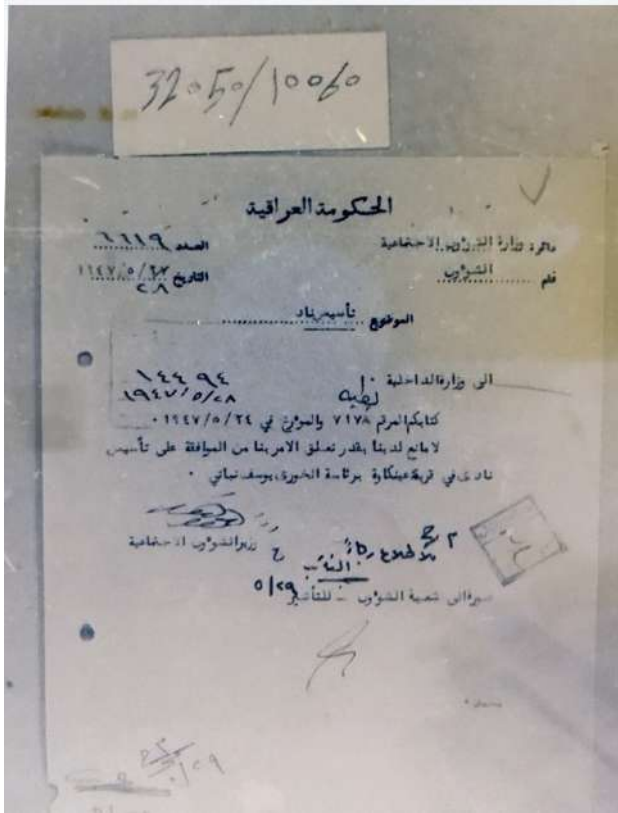 32050/10060
الحكومة العراقية
دائرة وزارة الشؤون الاجتماعية
العدد ٦٦١٩
قلم الشؤون
التاريخ ٢٧/٥/١٩٤٧
٢٨
الموضوع تأسيس ناد
الى وزارة الداخلية
١٤٤٩٤
١٩٤٧/٥/٢٨
كتابكم المرقم ٧١٧٨ والمؤرخ في ١٩٤٧/٥/٢٤ ٠
لا مانع لدينا بقدر تعلق الامر بنا من الموافقة على تأسيس
نادي في قرية عينكاوة برئاسة الخوري يوسف نباتي ٠
وزير الشؤون الاجتماعية
صورة الى شعبة الشؤون للتأشير
٥/٢٩